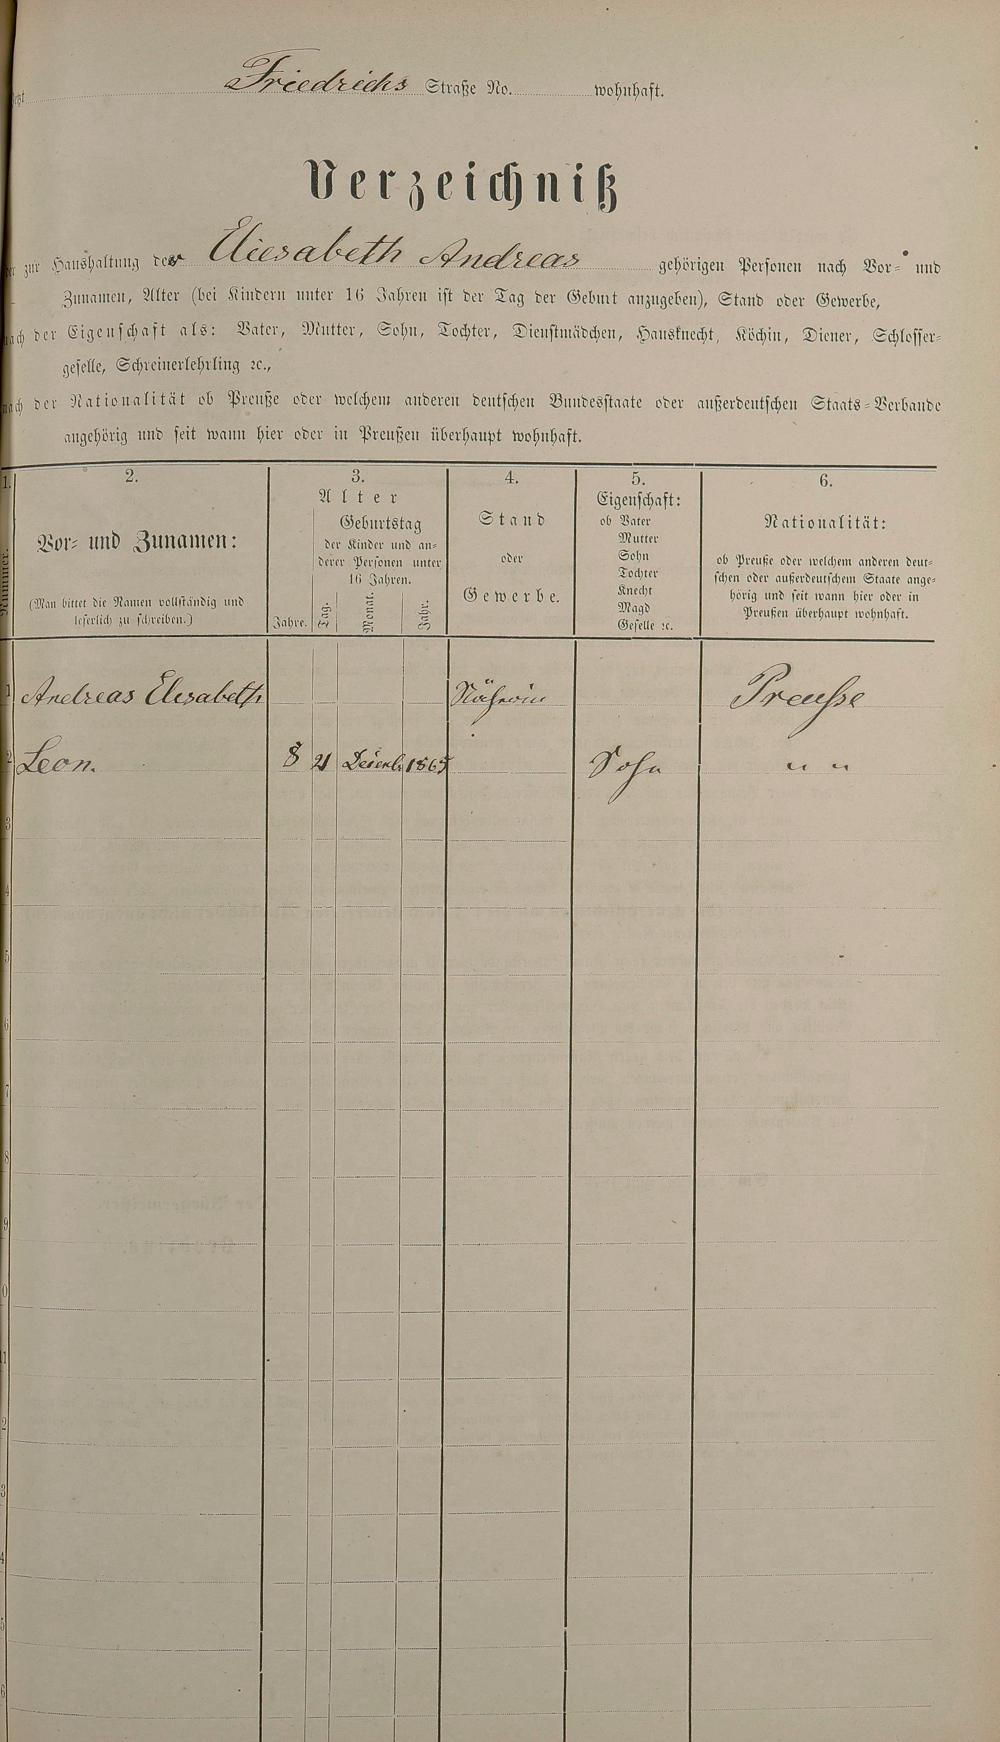 Friedrichs Straße No. wohnhaft.
Verzeichniß
der zur Haushaltung der Eliesabeth Andreas gehörigen Personen nach Vor- und
Zunamen, Alter (bei Kindern unter 16 Jahren ist der Tag der Geburt anzugeben), Stand oder Gewerbe,
nach der Eigenschaft als: Vater, Mutter, Sohn, Tochter, Dienstmädchen, Hausknecht, Köchin, Diener, Schlosser-
geselle, Schreinerlehrling ꝛc.,
nach der Nationalität ob Preuße oder welchem anderen deutschen Bundesstaate oder außerdeutschen Staats-Verbande
angehörig und seit wann hier oder in Preußen überhaupt wohnhaft.
1. 2. 3. 4. 5. 6.
Nummer.
Vor- und Zunamen:
(Man bittet die Namen vollständig und
leserlich zu schreiben.)
Alter
Geburtstag
der Kinder und an-
derer Personen unter
16 Jahren.
Jahre. Tag. Monat. Jahr.
Stand
oder
Gewerbe.
Eigenschaft:
ob Vater
Mutter
Sohn
Tochter
Knecht
Magd
Geselle ꝛc.
Nationalität:
ob Preuße oder welchem anderen deut-
schen oder außerdeutschem Staate ange-
hörig und seit wann hier oder in
Preußen überhaupt wohnhaft.
1 Andreas Elisabeth Näherin Preuße
2 Leon. 8 21 1865 Sohn " "
3
4
5
6
7
8
9
0
11
2
3
4
5
6